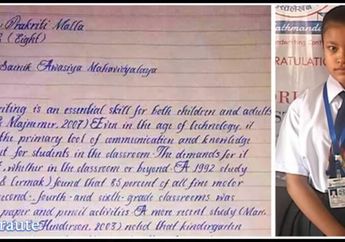 Prakriti Malla
8 (Eight)
Sainik Awasiya Mahavidyalaya
writing is an essential skill for both children and adults
& Majnemer, 2007) Even in the age of technology, it
the primary tool of communication and knowledge
for students in the classroom. The demands for it
, whether in the classroom or beyond. A 1992 study
& Cermak) found that 85 percent of all fine motor
second- fourth- and sixth-grade classrooms was
paper and pencil activities. A more recent study (Marr,
Henderson, 2003) noted that kindergarten
athmandu
ndwriting Cont
RATULATI